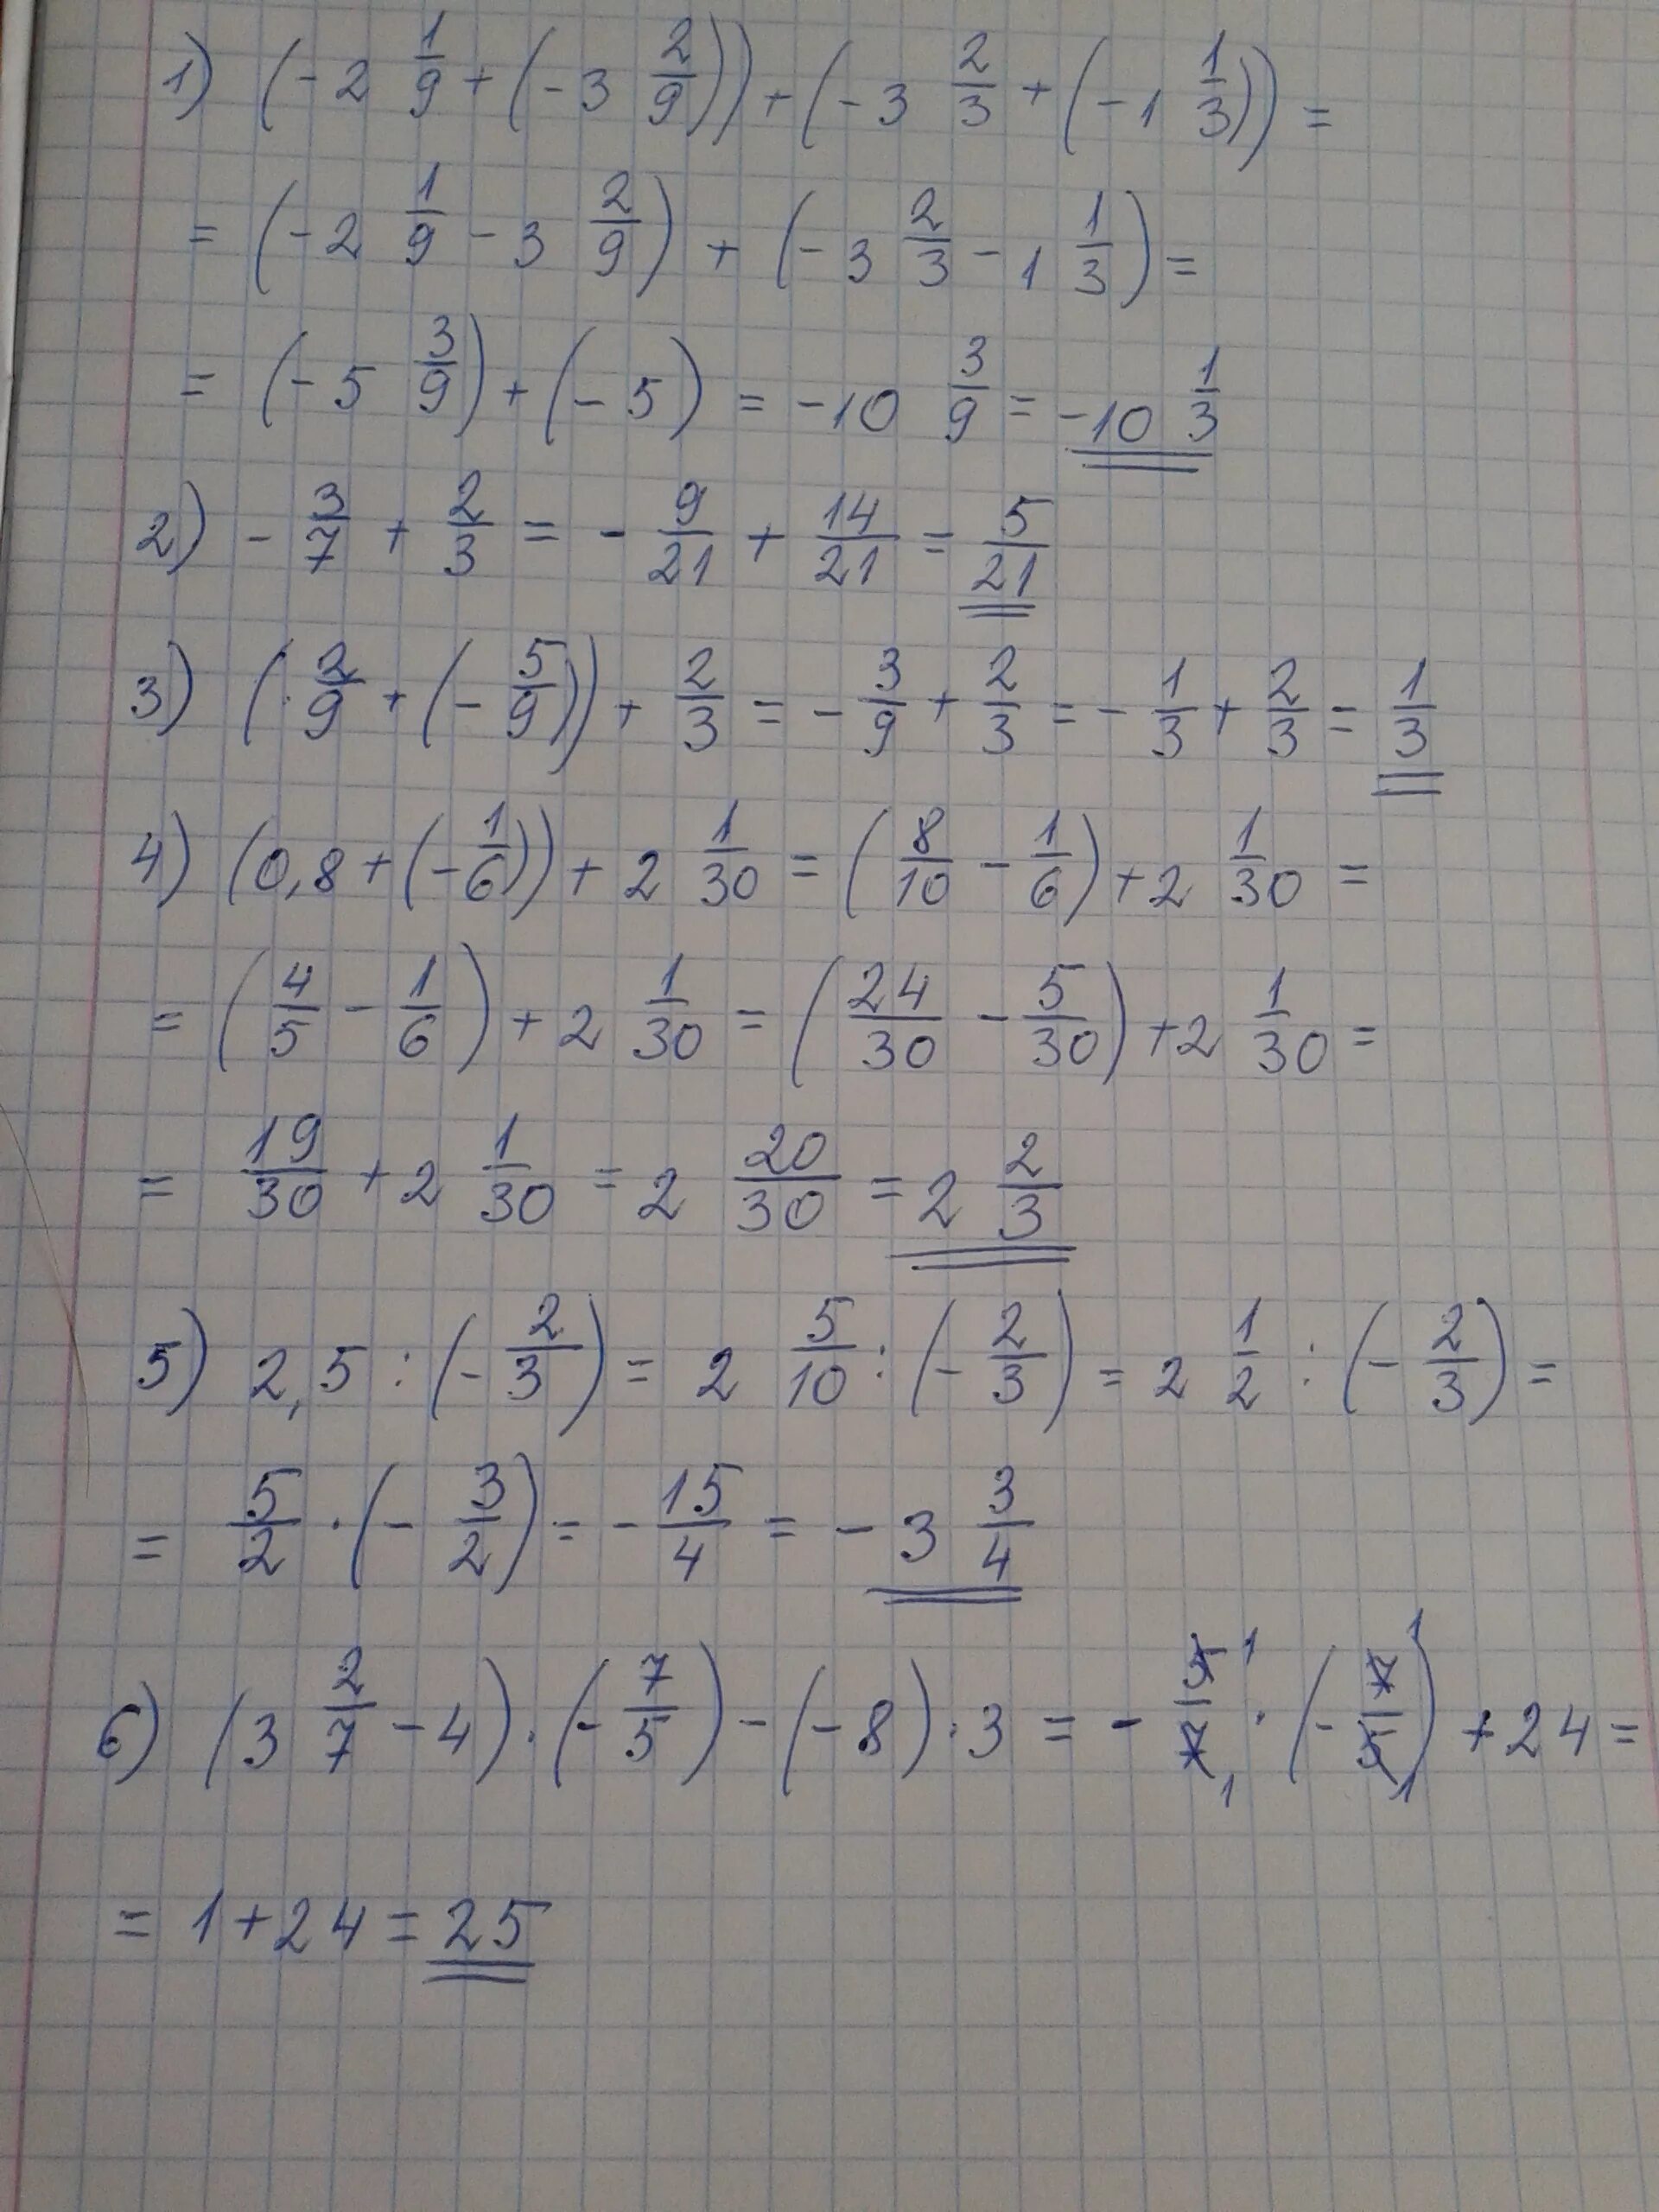 1) (-2 1/9 + (-3 2/9)) + (-3 2/3 + (-1 1/3)) =
= (-2 1/9 - 3 2/9) + (-3 2/3 - 1 1/3) =
= (-5 3/9) + (-5) = -10 3/9 = -10 1/3
2) - 3/7 + 2/3 = - 9/21 + 14/21 = 5/21
3) (2/9 + (- 5/9)) + 2/3 = - 3/9 + 2/3 = - 1/3 + 2/3 = 1/3
4) (0,8 + (- 1/6)) + 2 1/30 = (8/10 - 1/6) + 2 1/30 =
= (4/5 - 1/6) + 2 1/30 = (24/30 - 5/30) + 2 1/30 =
= 19/30 + 2 1/30 = 2 20/30 = 2 2/3
5) 2,5 : (- 2/3) = 2 5/10 : (- 2/3) = 2 1/2 : (- 2/3) =
= 5/2 · (- 3/2) = - 15/4 = - 3 3/4
6) (3 2/7 - 4) · (- 7/5) - (-8) · 3 = - 5 1/7 1 · (- 7 1/5 1) + 24 =
= 1 + 24 = 25